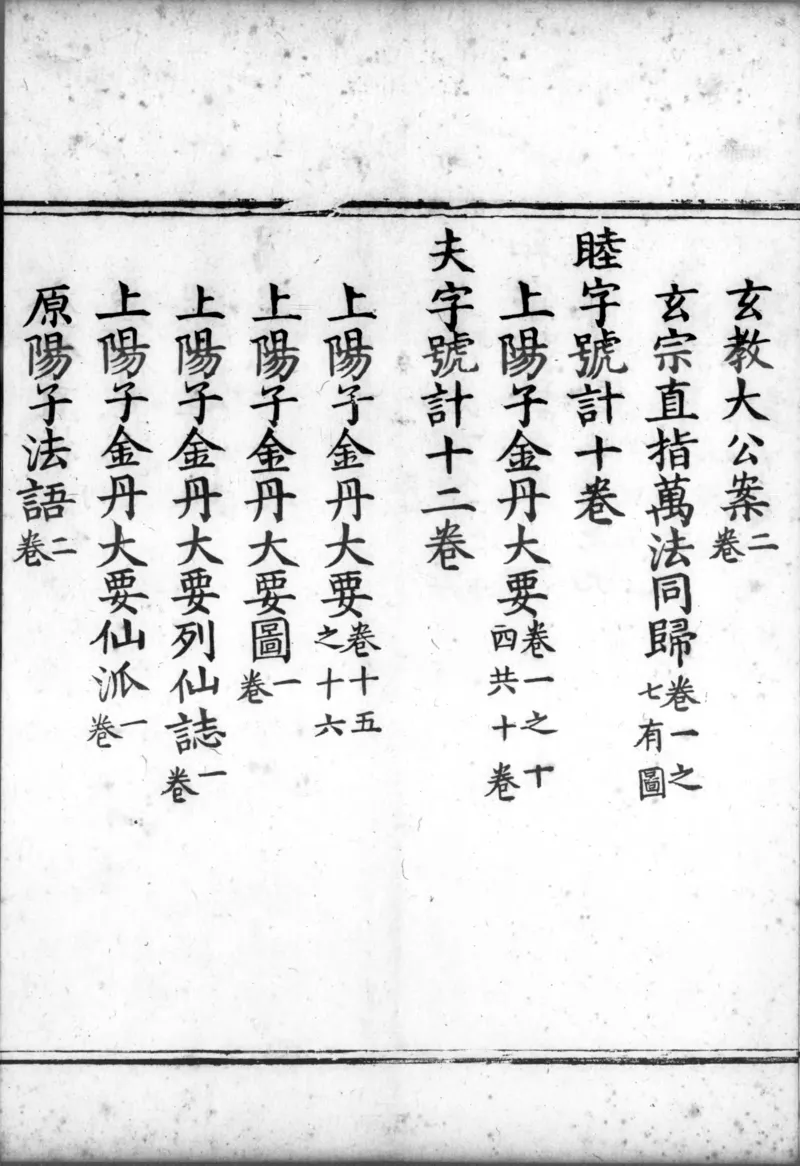 玄教大公案二卷
玄宗直指萬法同歸卷一之七有圖
睦字號計十卷
上陽子金丹大要卷一之十四共十卷
夫字號計十二卷
上陽子金丹大要卷十五之十六
上陽子金丹大要圖一卷
上陽子金丹大要列仙誌一卷
上陽子金丹大要仙派一卷
原陽子法語二卷